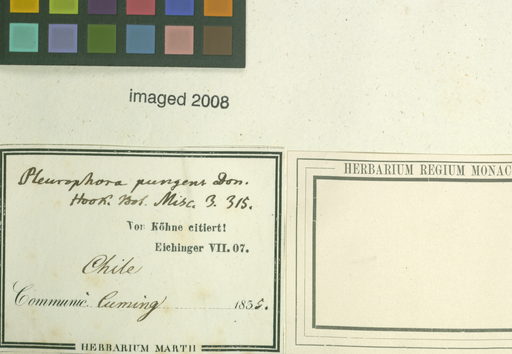 imaged 2008
Pleurophora pungens Don.
Hook. Bot. Misc. 3. 315.
Von Köhne citiert!
Eichinger VII. 07.
Chile
Communic. Cuming 1835.
HERBARIUM MARTII
HERBARIUM REGIUM MONAC